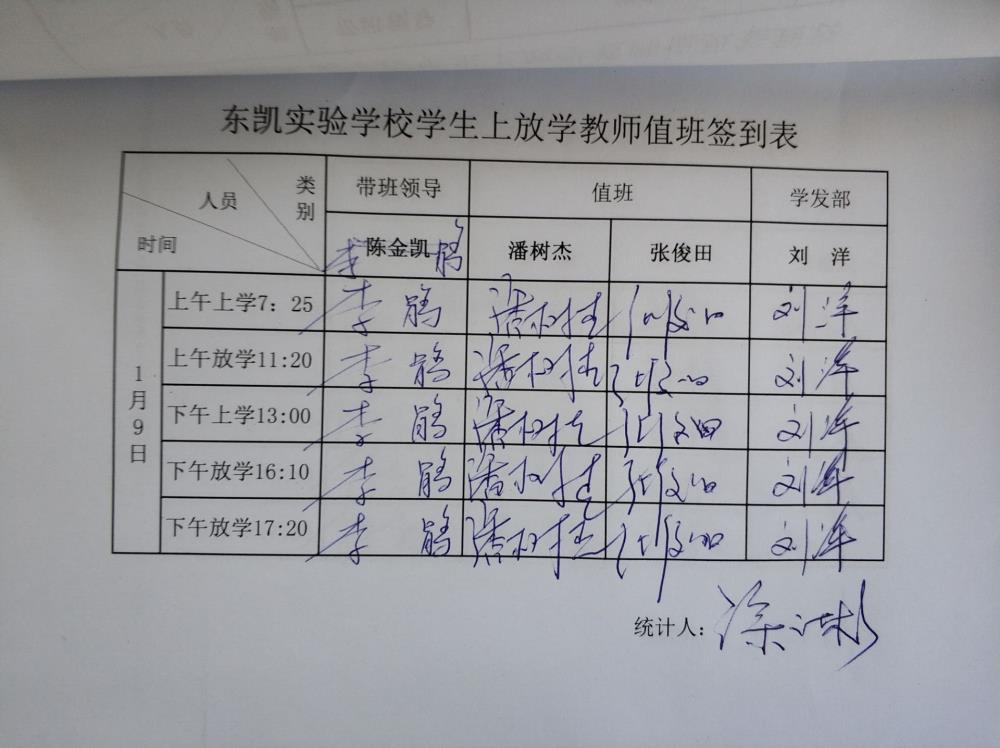 东凯实验学校学生上放学教师值班签到表
人员 类别 时间 带班领导 值班 学发部
陈金凯 李鹃 潘树杰 张俊田 刘 洋
1月9日
上午上学7：25 李鹃 潘树杰 张俊田 刘洋
上午放学11:20 李鹃 潘树杰 张俊田 刘洋
下午上学13:00 李鹃 潘树杰 张俊田 刘洋
下午放学16:10 李鹃 潘树杰 张俊田 刘洋
下午放学17:20 李鹃 潘树杰 张俊田 刘洋
统计人：